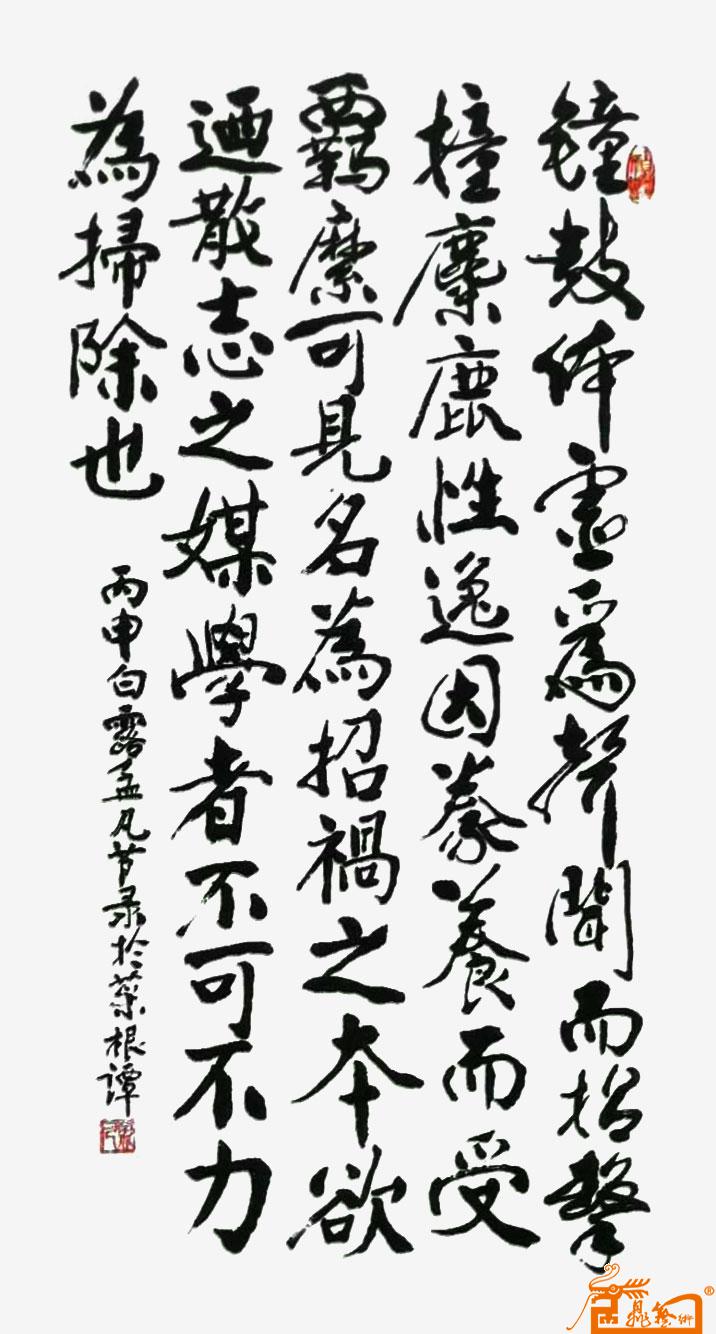 鐘鼓体虛爲聲聞而招擊
撞麋鹿性逸因豢養而受
羈縻可見名為招禍之本欲
迺散志之媒學者不可不力
為掃除也
丙申白露孟凡节录於菜根谭